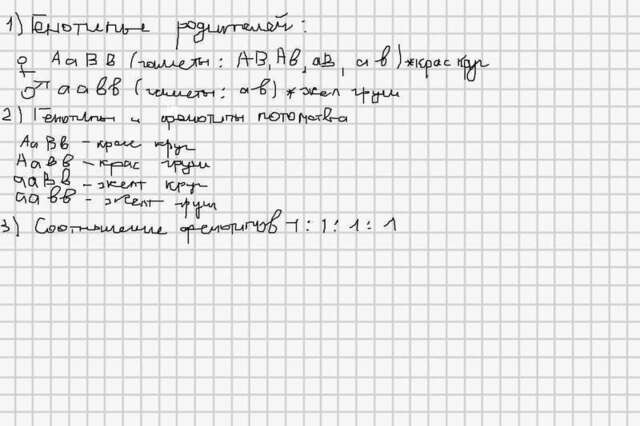 1) Генотипы родителей:
♀ АаВв (гаметы: АВ, Ав, аВ, ав) *крас круг
♂ аавв (гаметы: ав) *жел груш
2) Генотипы и фенотипы потомства
АаВв - крас круг
Аавв - крас груш
ааВв - желт круг
аавв - желт груш
3) Соотношение фенотипов - 1 : 1 : 1 : 1